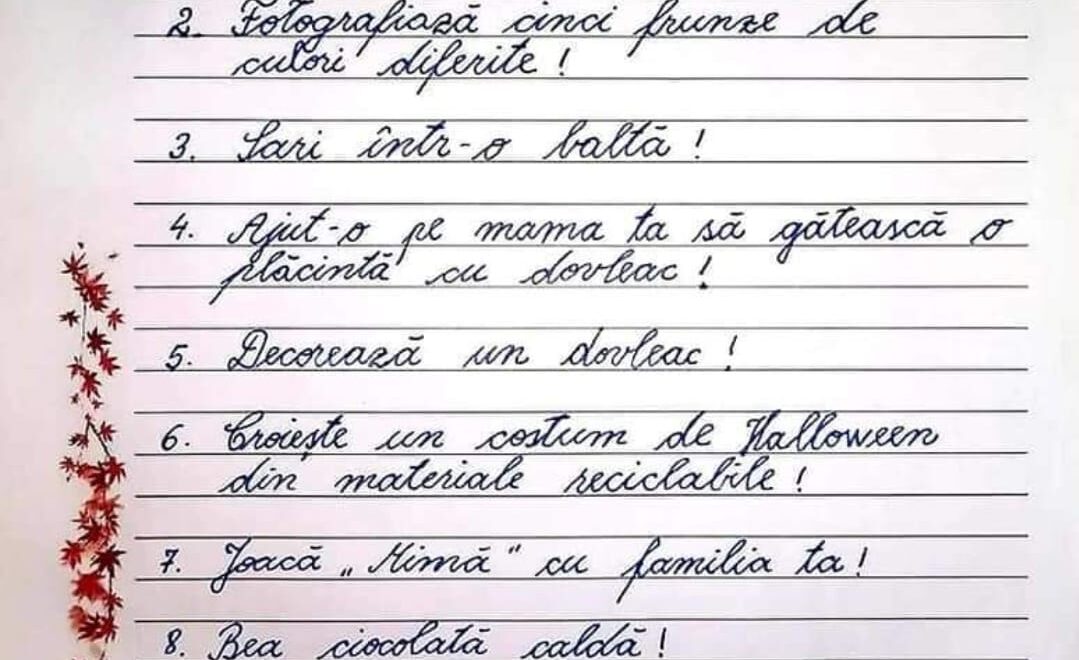 2. Fotografiază cinci frunze de
culori diferite!
3. Sari într-o baltă!
4. Ajut-o pe mama ta să gătească o
plăcintă cu dovleac!
5. Decorează un dovleac!
6. Croiește un costum de Halloween
din materiale reciclabile!
7. Joacă „Mimă" cu familia ta!
8. Bea ciocolată caldă!